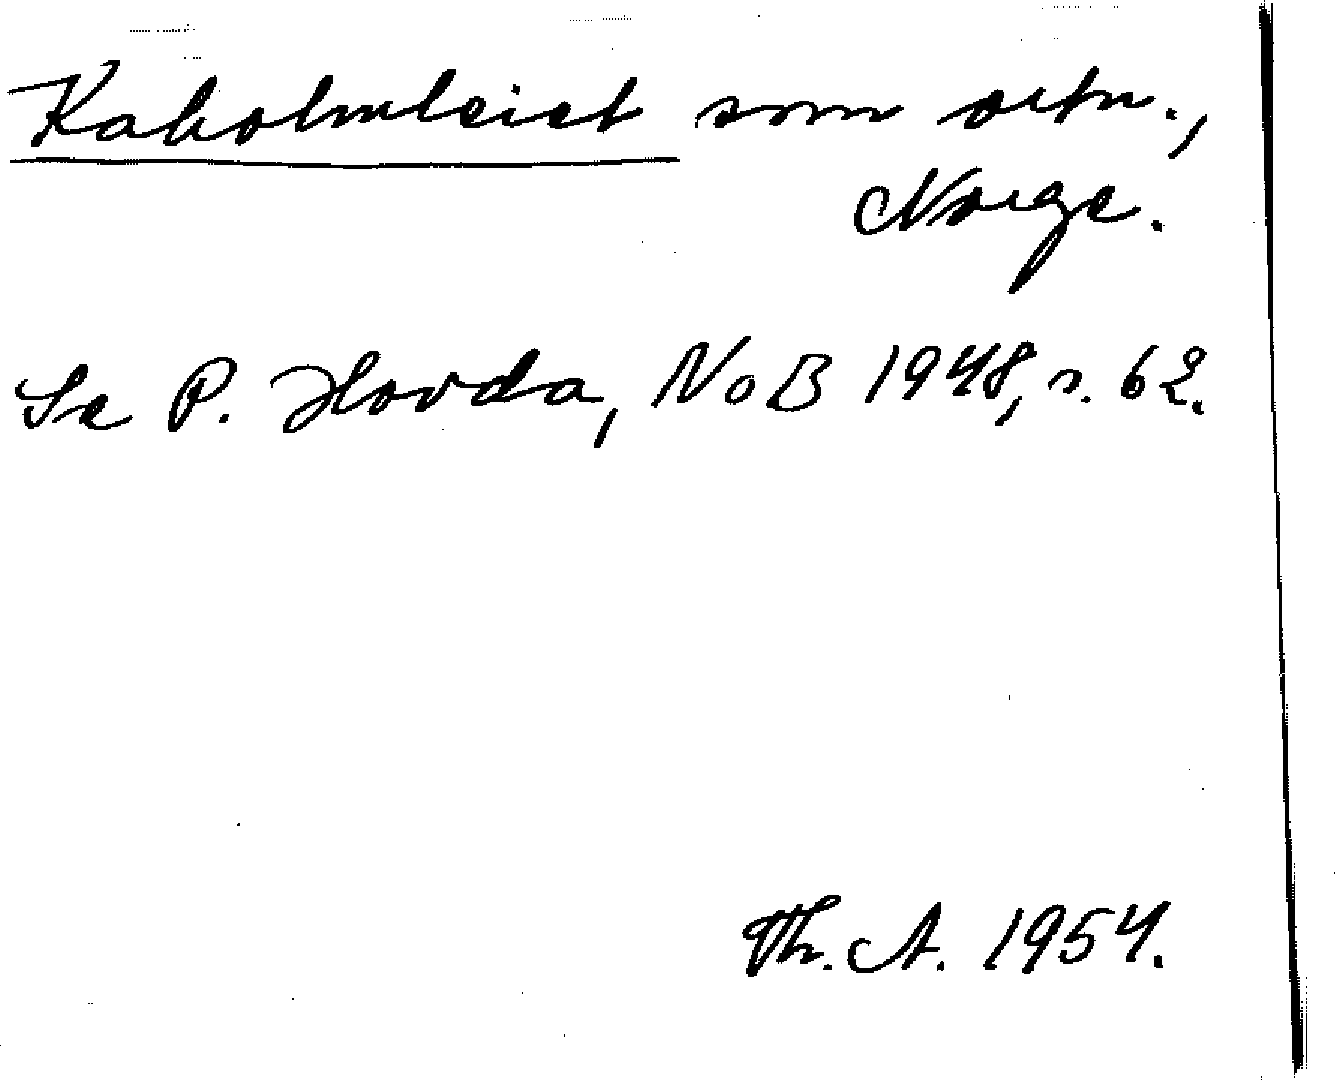 Kaholmleiet som ortn.,
Norge.
Se P. Hovda, NoB 1948, s. 62.
Th. A. 1954.